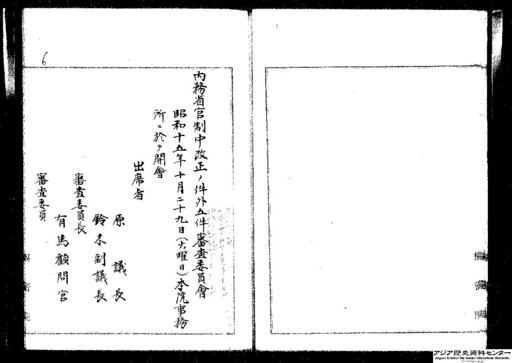 6
内務省官制中改正ノ件外五件審査委員會
昭和十五年十月二十九日(火曜日)本院事務
所ニ於テ開會
出席者
原議長
鈴木副議長
審査委員長
有馬顧問官
審査委員
アジア歴史資料センター
Japan Center for Asian Historical Records